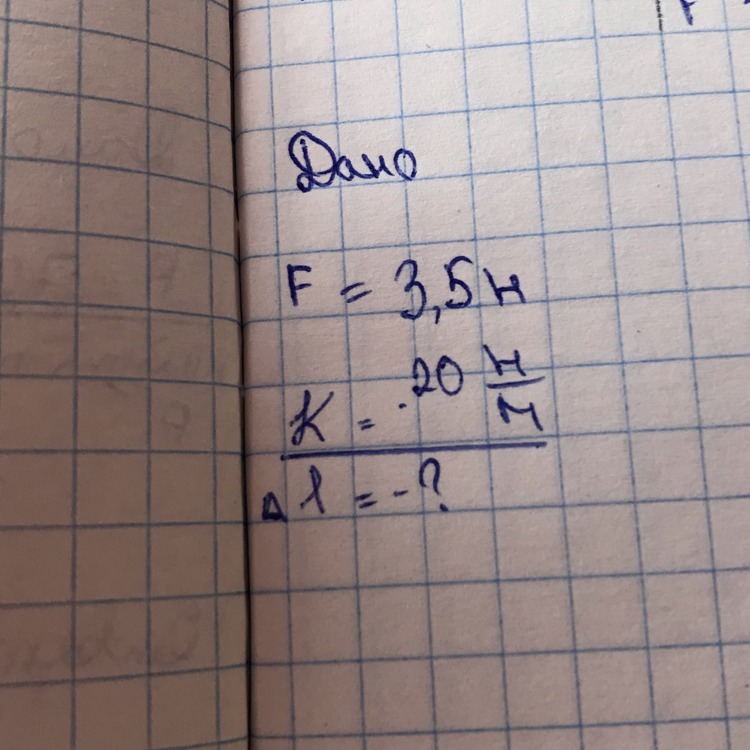 Дано
F = 3,5 н
K = 20 н/м
Δ l = - ?